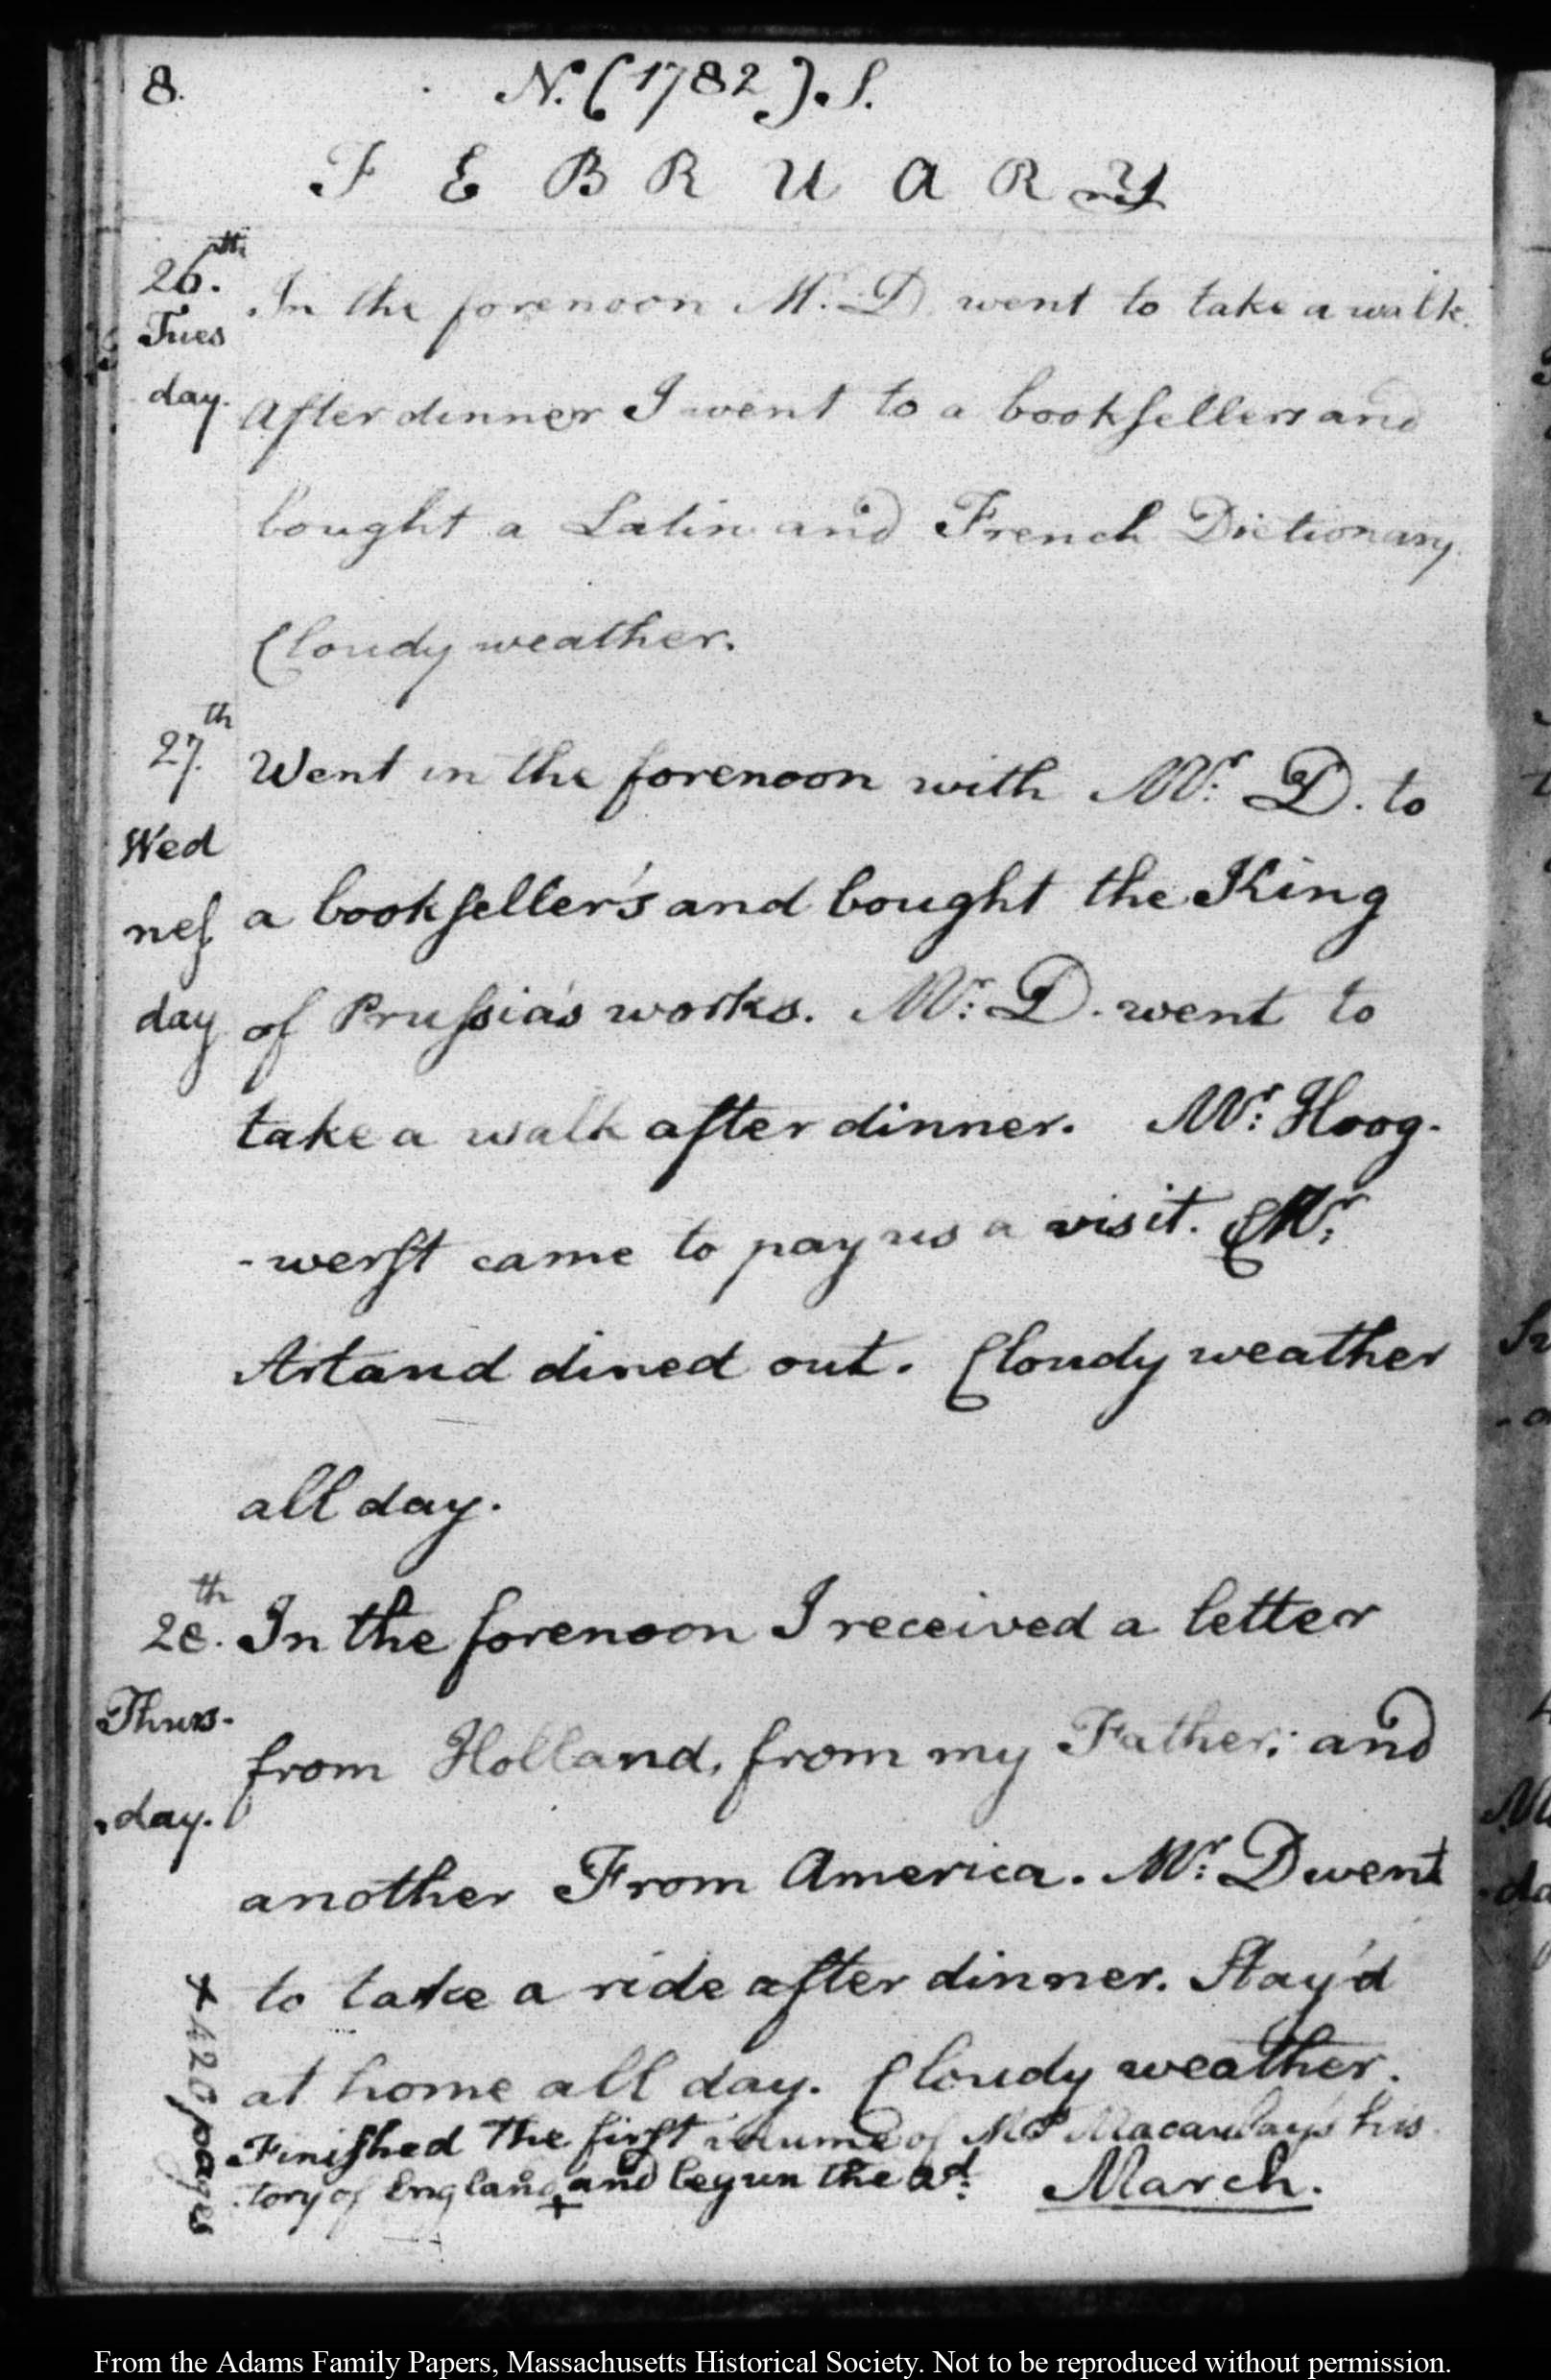 8.
N. (1782). S.
FEBRUARY
26.th
Tues
day.
In the forenoon Mr. D. went to take a walk.
After dinner I went to a booksellers and
bought a Latin and French Dictionary.
Cloudy weather.
27.th
Wed
nes
day
Went in the forenoon with Mr: D. to
a bookseller's and bought the King
of Prussia's works. Mr: D. went to
take a walk after dinner. Mr: Hoog-
-werst came to pay us a visit. & Mr:
Artaud dined out. Cloudy weather
all day.
28.th
Thurs-
-day.
In the forenoon I received a letter
from Holland, from my Father; and
another From America. Mr: D went
to take a ride after dinner. Stay'd
at home all day. Cloudy weather.
Finished the first volume of Mrs Macaulay's his-
-tory of England + and begun the 2d:
March.
+ 420 pages
From the Adams Family Papers, Massachusetts Historical Society. Not to be reproduced without permission.